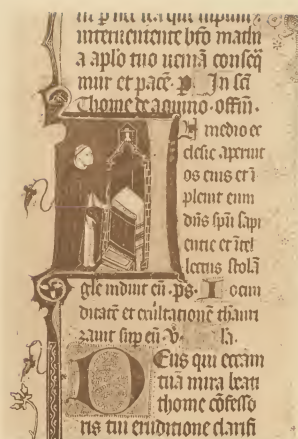 interueniente bto mathi
a aplo tuo ueniā conseq̄
mur et pacē. p In sci
Thome de aquino. offm̄.
In medio ec
clesie aperuit
os eius et ī
pleuit eum
dn̄s spū sapi
entie et ītel
lectus stolā
gl'e induit eū. ps. Iocun
ditatē et exultationē thauri
zauit sup eū. v. la.
Deus qui eccam
tuā mira beati
thome cōfesso
ris tui eruditione clarifi